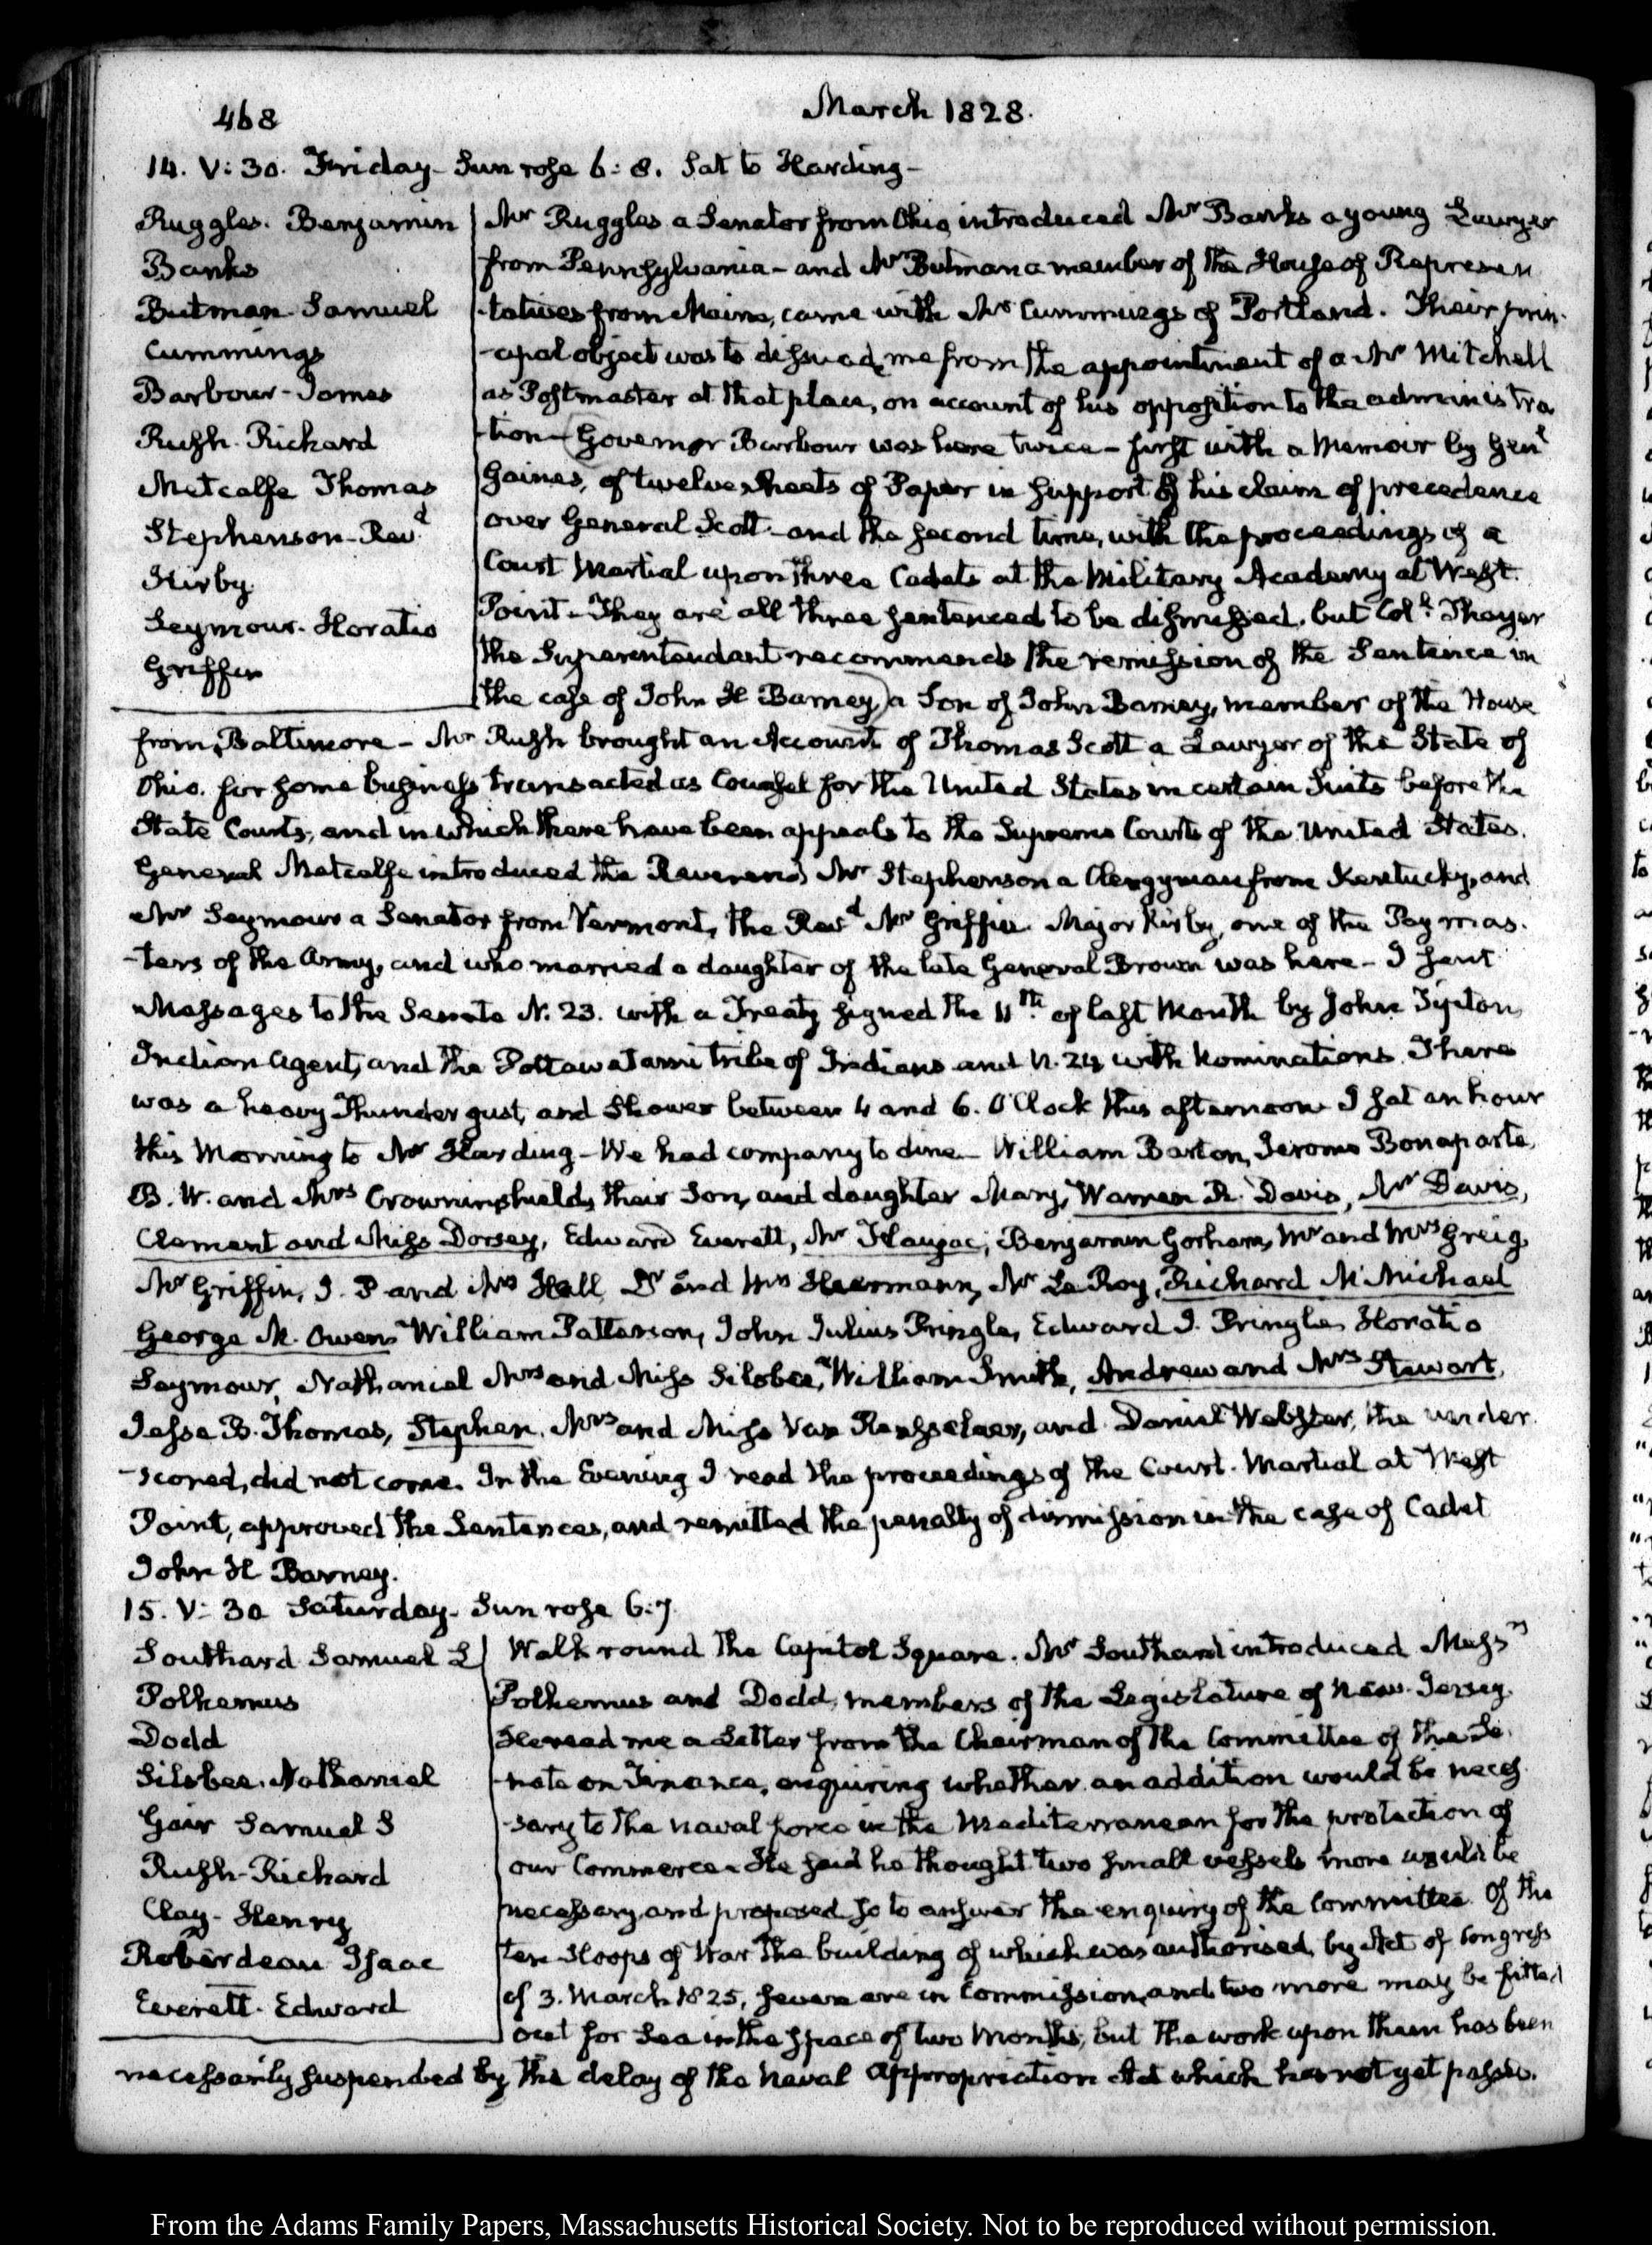 468
March 1828.
14. V: 30. Friday - Sun rose 6: 8. Sat to Harding -
Ruggles. Benjamin
Banks
Butman Samuel
Cummings
Barbour - James
Rush. Richard
Metcalfe Thomas
Stephenson - Revd
Kirby
Seymour. Horatio
Griffin
Mr Ruggles a Senator from Ohio, introduced Mr Banks a young Lawyer
from Pennsylvania - and Mr Butman a member of the House of Represen
-tatives from Maine, came with Mr Cummings of Portland. Their prin-
-cipal object was to dissuade me from the appointment of a Mr Mitchell
as Postmaster at that place, on account of his opposition to the administra
-tion - Governor Barbour was here twice - first with a Memoir by Genl
Gaines, of twelve sheets of Paper in support of his claim of precedence
over General Scott - and the second time, with the proceedings of a
Court Martial upon three Cadets at the Military Academy at West
Point - They are all three sentenced to be dismissed, but Coll. Thayer
the Superintendant recommends the remission of the Sentence in
the case of John H Barney, a Son of John Barney, member of the House
from Baltimore - Mr Rush brought an Account of Thomas Scott a Lawyer of the State of
Ohio. for some business transacted as Counsel for the United States in certain Suits before the
State Courts, and in which there have been appeals to the Supreme Courts of the United States.
General Metcalfe introduced the Reverend Mr Stephenson a Clergyman from Kentucky, and
Mr Seymour a Senator from Vermont, the Revd Mr Griffin. Major Kirby, one of the Paymas-
-ters of the Army, and who married a daughter of the late General Brown was here - I sent
Messages to the Senate N. 23. with a Treaty signed the 11th. of last Month by John Tipton,
Indian Agent, and the Pottawatami tribe of Indians and N. 24 with Nominations. There
was a heavy Thunder gust, and Shower between 4 and 6. O'Clock this afternoon I sat an hour
this Morning to Mr Harding - We had company to dine - William Barton, Jerome Bonaparte,
B. W. and Mrs Crowninshield, their Son, and daughter Mary, Warren R. Davis, Mr Davis,
Clement and Miss Dorsey, Edward Everett, Mr Flaugac, Benjamin Gorham, Mr and Mrs Greig,
Mr Griffin, J. P and Mrs Hall, Dr and Mrs Heermann, Mr Le Roy, Richard M'Michael
George M. Owens William Patterson, John Julius Pringle, Edward J. Pringle, Horatio
Seymour, Nathaniel Mrs and Miss Silsbee, William Smith, Andrew and Mrs Stewart,
Jesse B. Thomas, Stephen, Mrs and Miss Van Rensselaer, and Daniel Webster, the under
-scored, did not come. In the Evening I read the proceedings of the Court. Martial at West
Point, approved the Sentences, and remitted the penalty of dismission in the case of Cadet
John H Barney.
15. V: 30 Saturday - Sun rose 6:7
Southard Samuel L
Polhemus
Dodd
Silsbee. Nathaniel
Gair Samuel S
Rush - Richard
Clay - Henry
Roberdeau Isaac
Everett. Edward
Walk round the Capitol Square. Mr Southard introduced Messrs
Polhemus and Dodd, members of the Legislature of New-Jersey.
He read me a Letter from the Chairman of the Committee of the Se-
-nate on Finance, enquiring whether an addition would be neces-
-sary to the naval force in the Mediterranean for the protection of
our Commerce. He said he thought two small vessels more would be
necessary, and proposed so to answer the enquiry of the Committee. Of the
ten Sloops of War the building of which was authorised, by Act of Congress
of 3. March 1825, seven are in Commission, and two more may be fitted
out for Sea in the space of two Months, but the work upon them has been
necessarily suspended by the delay of the Naval Appropriation Act which has not yet passed.
From the Adams Family Papers, Massachusetts Historical Society. Not to be reproduced without permission.